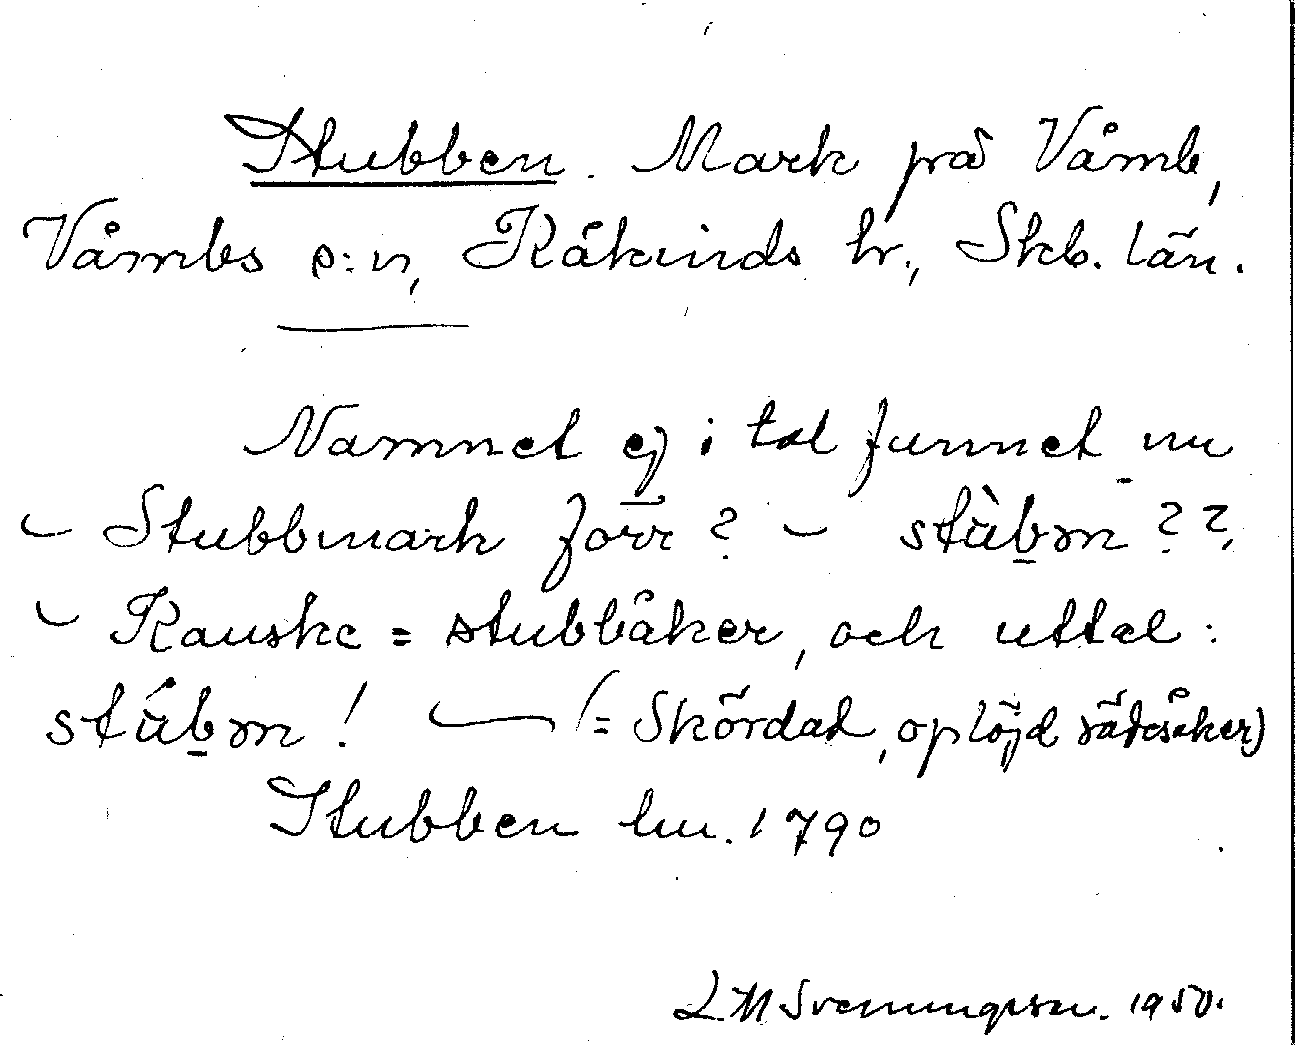 Stubben. Mark på Våmb,
Våmbs s:n, Kåkinds hr., Skb. län.
Namnet ej i tal funnet nu
– Stubbmark förr? – stùbm??
– Kanske = stubbåker, och uttal:
stúbm! — (= Skördad, oplöjd sädesåker)
Stubben lm. 1790
L.M Svenungsson. 1950.